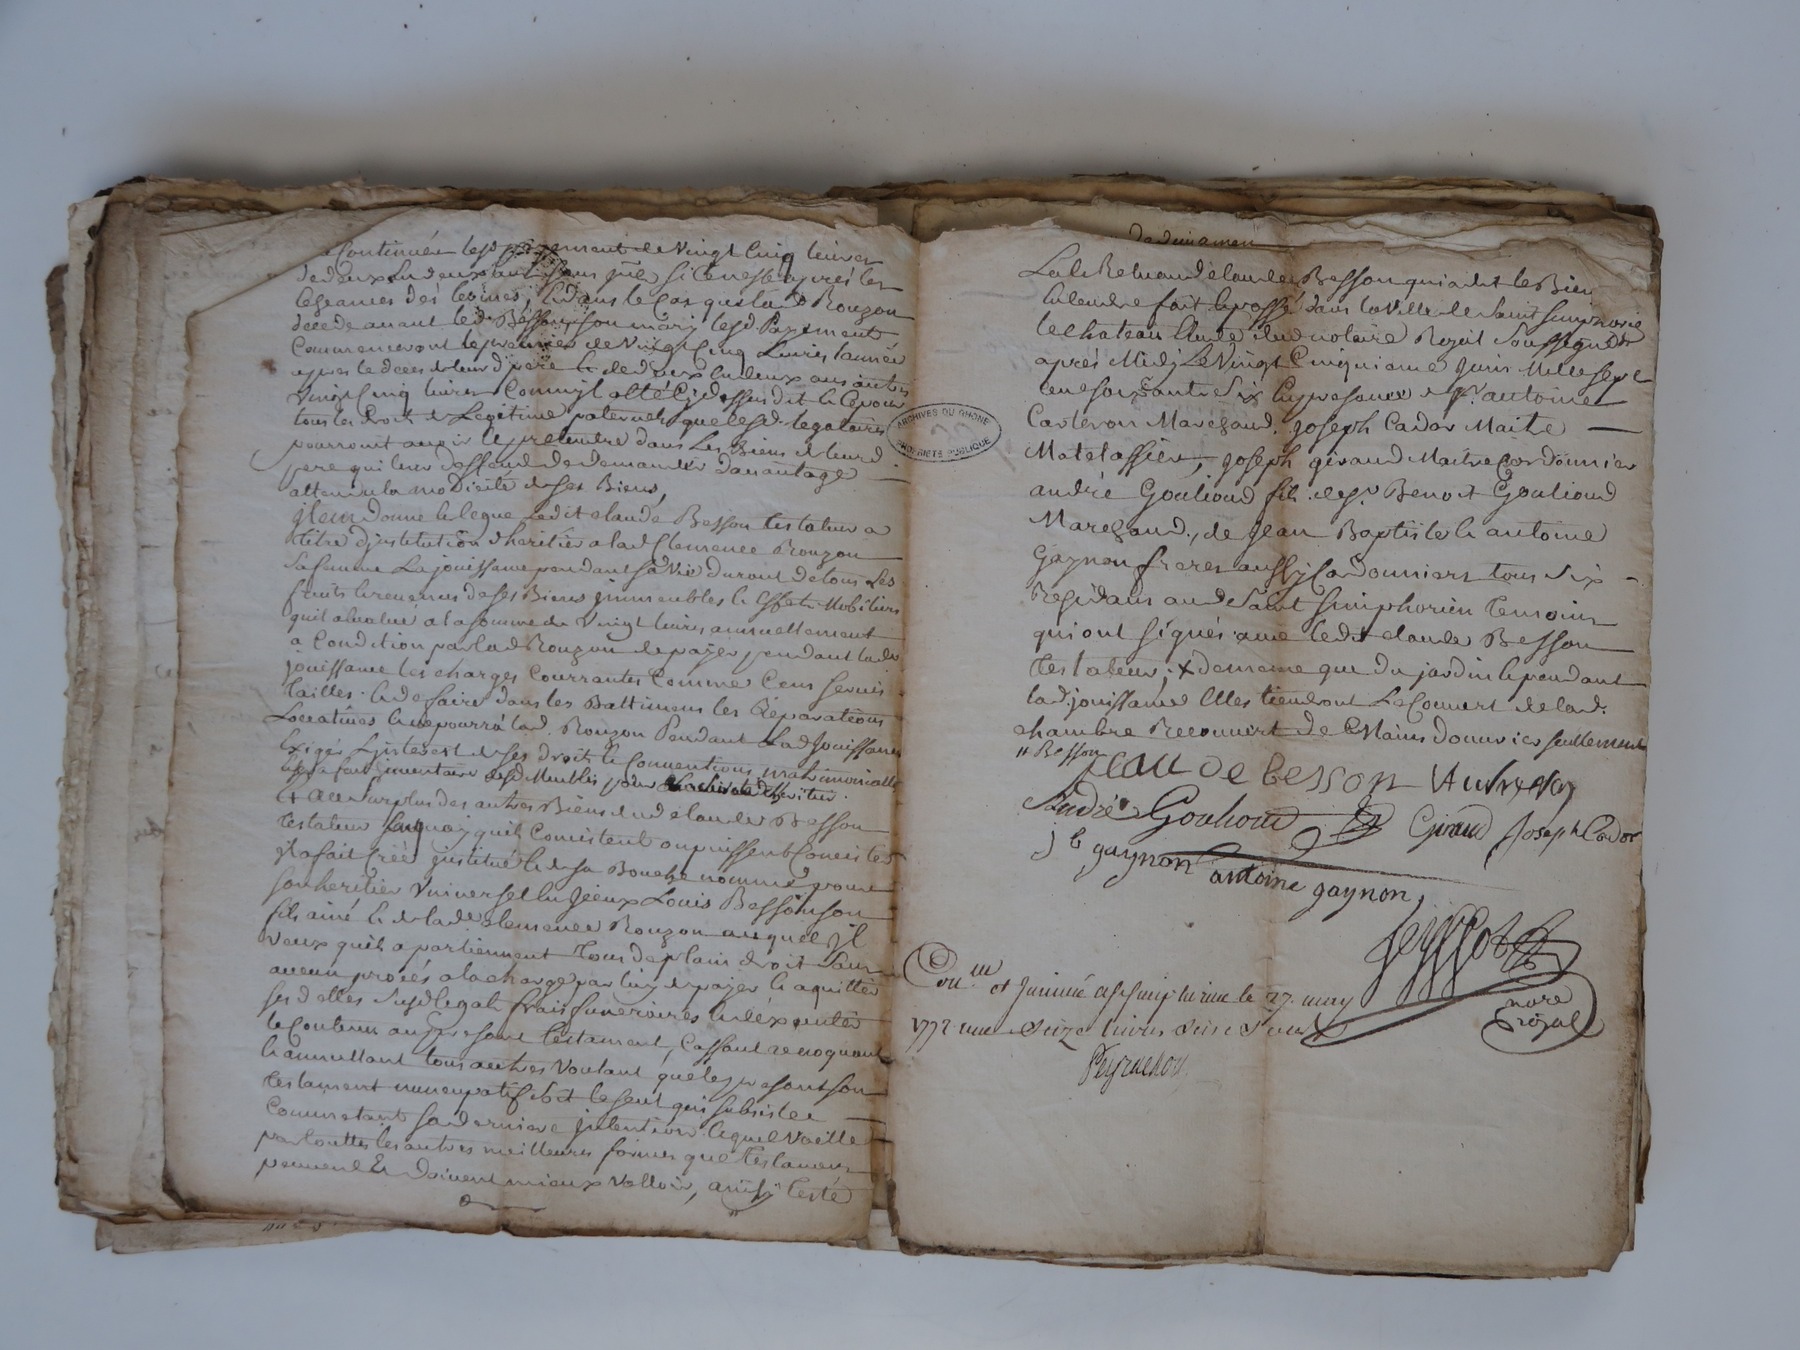 Continuée lesd. payement de Vingt Cinq livres
de deux en deux ans sans que
légeames des termes, Et dans le Cas que lad. Rouzon
décède avant led. Besson son mary lesd. Payements
Commenceront le premier de Vingt Cinq Livres l'année
après le décès de leur d. père Et de deux en deux ans autres
Vingt Cinq livres Comm'jl a été Cy dessus dit Et Ce pour
tous les Droits de Legitime paternels que lesd. legataires
pourront avoir Et pretendre dans Les Biens de leurd.
pere qui leur deffend de demander davantage
attendu la modicité de ses Biens,
jtem donne Et legue ledit claude Besson testateur a
titre d'jnstitution d'heritier a lad. Clemence Rouzon
sa femme La jouissance pendant sa Vie durant de tous Les
fruits Et revenus de ses Biens jmmeubles Et effets Mobiliers
quil a evalué a la somme de Vingt livres annuellement
a Condition par lad. Rouzon de payer pendant lad.
jouissance les charges Courrantes Comme Cens servis
tailles Et de faire dans les Battimens les Reparations
Locatives Et ne pourrà lad. Rouzon Pendant Lad. Jouissance
Exiger L'jnterest de ses droits Et Conventions matrimonialles
faire jnventaire desd. Meubles pour
Et Au surplus des autres Biens dud. claude Besson
testateur En quoy quils Consistent ou puissent Consister
jl a fait Créé jnstitué Et de sa Bouche nommé pour
son heritier Universel Louis Besson son
fils ainé Et de lad. clemence Rouzon auquel jl
Veux quils apartiennent tous de plain droit sans
aucun procés a la charge par luy de payer Et aquitter
ses dettes susd. legats frais funeraires Et d'éxecuter
le Contenu au present testament, Cassant revoquant
Et annullant tous autres Voulant que le present son
testament nuncupatif soit le seul qui subsiste
Comm'etant sa derniere jntention lequel Vaille
par touttes les autres meilleures formes que testamens
peuvent Et doivent mieux Valloir, ainsy testé
Besson qui a dit
Et lecture fait Et passé dans la Ville de Saint Simphorien
le chateau Etude dud. notaire Royal Soussigné
après Midy Le Vingt Cinquieme Juin Mille sept
cent soixante Six En presence de Sr. antoine
Carteron Marchand, Joseph Cador Maitre
Matelassier, Joseph giraud Maitre Cordonnier
andré Goulioud fils de Sr. Benoit Goulioud
Marchand, de Jean Baptiste Et antoine
Gaynon freres aussy Cordonniers tous Six
Residans aud. Saint Simphorien temoins
qui ont signés avec ledit claude Besson
testateur. x de meme que du jardin Et pendant
lad. jouissance Elles tiendront Le Couvert de lad.
chambre Recouvert de Mains d'ouvrier seullement
" Besson
André Gouhoud Giraud Joseph Cador
J b gaynon antoine gaynon
nore
royal
Con.lle et Jnsinué a St Simphorien le 27. may
1772 reçu Seize livres Seise Sous